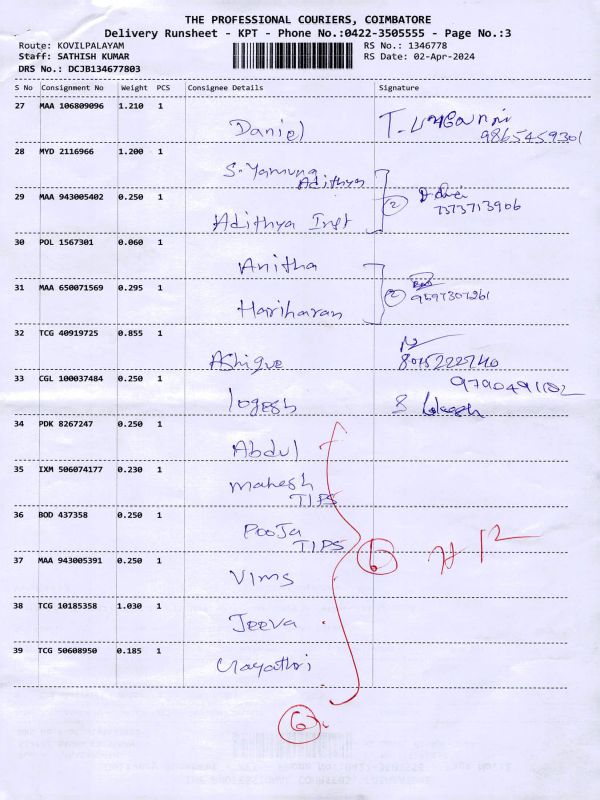 THE PROFESSIONAL COURIERS, COIMBATORE
Delivery Runsheet - KPT - Phone No.:0422-3505555 - Page No.:3
Route: KOVILPALAYAM RS No.: 1346778
Staff: SATHISH KUMAR RS Date: 02-Apr-2024
DRS No.: DCJB134677803
S No Consignment No Weight PCS Consignee Details Signature
27 MAA 106809096 1.210 1
Daniel
9865459301
28 MYD 2116966 1.200 1
S. Yamuna
Adithya
29 MAA 943005402 0.250 1
2
7373713906
Adithya Inst
30 POL 1567301 0.060 1
Anitha
31 MAA 650071569 0.295 1
2 9597307261
Hariharan
32 TCG 40919725 0.855 1
Ashique 8075222740
33 CGL 100037484 0.250 1
9790491102
logesh
34 PDK 8267247 0.250 1
Abdul
35 IXM 506074177 0.230 1
Mahesh
TIPS
36 BOD 437358 0.250 1
Pooja
TIPS
6
37 MAA 943005391 0.250 1
Vims
38 TCG 10185358 1.030 1
Jeeva
39 TCG 50608950 0.185 1
Gayathri
6